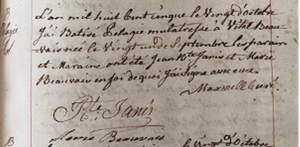 L'an mil huit Cent cinque le Vingt d'Octobre
J'ai Batisé Pelage mulatresse à Vital Beau-
vais née le Vingt un de Septembre les parain
et Maraine ont été Jean Bte Janis et Marie
Beauvais en foi de quoi j'ai signé avec eux
Maxwell Curé
Bte Janis
Marie Beauvais
le Vingt d'Octobre